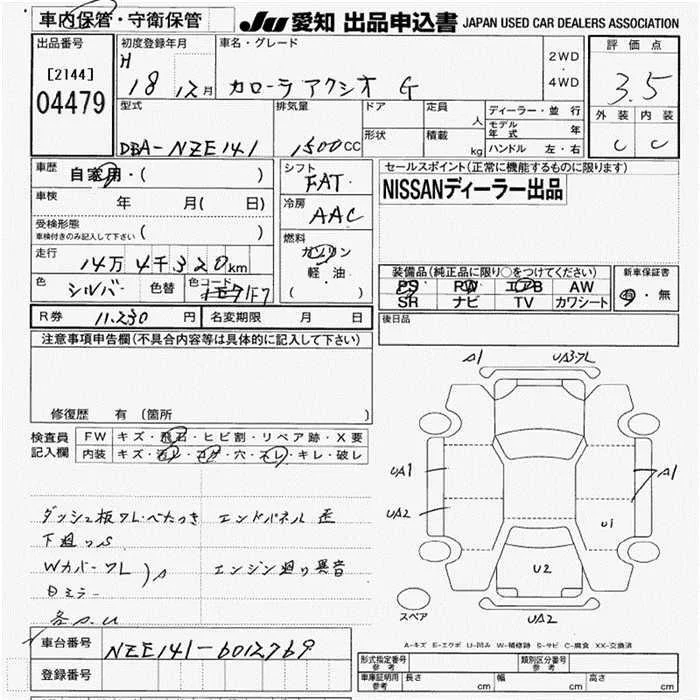 車内保管・守衛保管
JU 愛知 出品申込書 JAPAN USED CAR DEALERS ASSOCIATION
出品番号
[2144]
04479
初度登録年月
H 18 12月
車名・グレード
カローラ アクシオ G
2WD
・
4WD
評価点
3.5
外装 内装
C C
型式
DBA-NZE141
排気量
1500cc
ドア
形状
定員 人
積載 kg
ディーラー・並行
モデル年式 年
ハンドル 左・右
車歴
自家用・( )
車検
年 月( 日)
受検形態
車検付きのみ記入して下さい ( )
走行
14万4千320km
色
シルバー
色替
色コード
1F7
シフト
FAT
冷房
AAC
燃料
ガソリン
軽・油
( )
セールスポイント(正常に機能するものに限ります)
NISSANディーラー出品
装備品(純正品に限り○をつけてください)
PS PW エアB AW
SR ナビ TV カワシート
新車保証書
有・無
R券 11,230円
名変期限 月 日
後日品
注意事項申告欄(不具合内容等は具体的に記入して下さい)
修復歴 有 (箇所 )
検査員
記入欄
FW キズ・飛石・ヒビ割・リペア跡・X要
内装 キズ・汚レ・コゲ・穴・スレ・キレ・破レ
ダッシュ板ワレ・べたつき エンドパネル歪
下廻りS
Wカバーワレ エンジン廻り異音
A
各A.U
車台番号 NZE141-6012769
登録番号
A1 UA3・ワレ
UA1
UA2
A1
U1
U2
UA2
スペア
A-キズ E-エクボ U-凹み W-補修跡 S-サビ C-腐食 XX-交換済
形式指定番号
参考
類別区分番号
参考
車庫証明用
参考
長さ cm
幅 cm
高さ cm